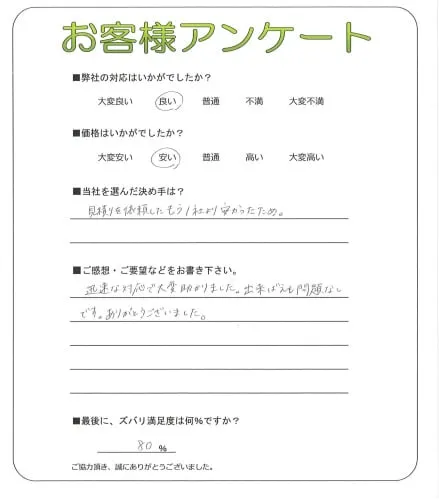 お客様アンケート
■弊社の対応はいかがでしたか？
大変良い 良い 普通 不満 大変不満
■価格はいかがでしたか？
大変安い 安い 普通 高い 大変高い
■当社を選んだ決め手は？
見積りを依頼したもう1社より安かったため。
■ご感想・ご要望などをお書き下さい。
迅速な対応で大変助かりました。出来ばえも問題なし
です。ありがとうございました。
■最後に、ズバリ満足度は何％ですか？
80 %
ご協力頂き、誠にありがとうございました。